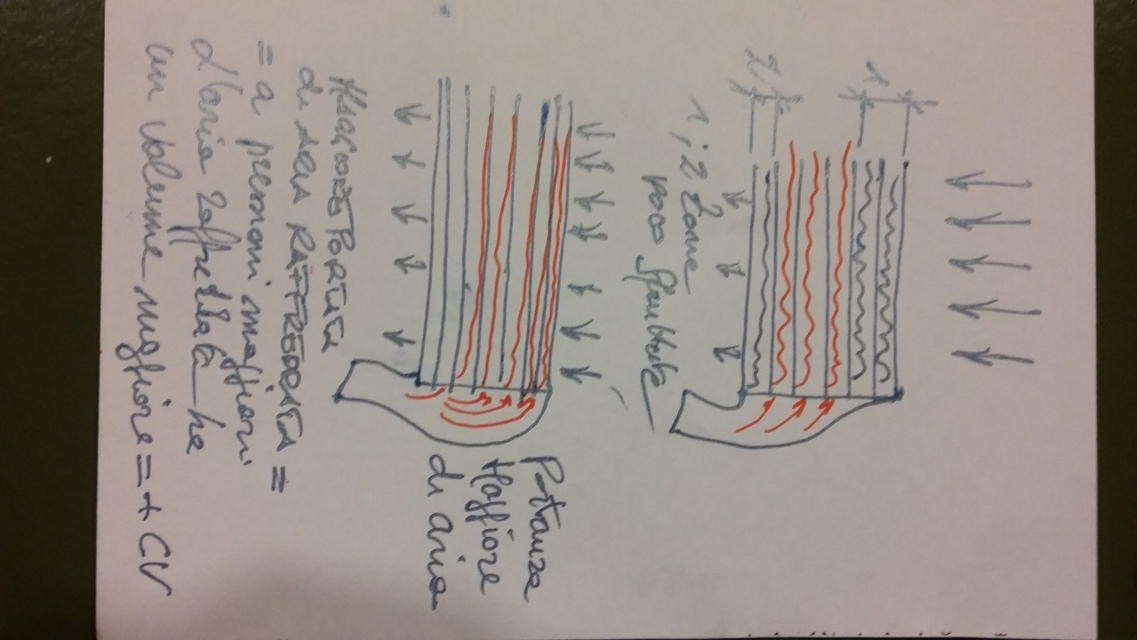 1
2
1, 2 Zone
poco sfruttate
Portanza
Maggiore
di aria
Maggiore Portata
di aria RAFFREDDATA =
= a pressioni maggiori
l'aria raffreddata ha
un volume migliore = + CV